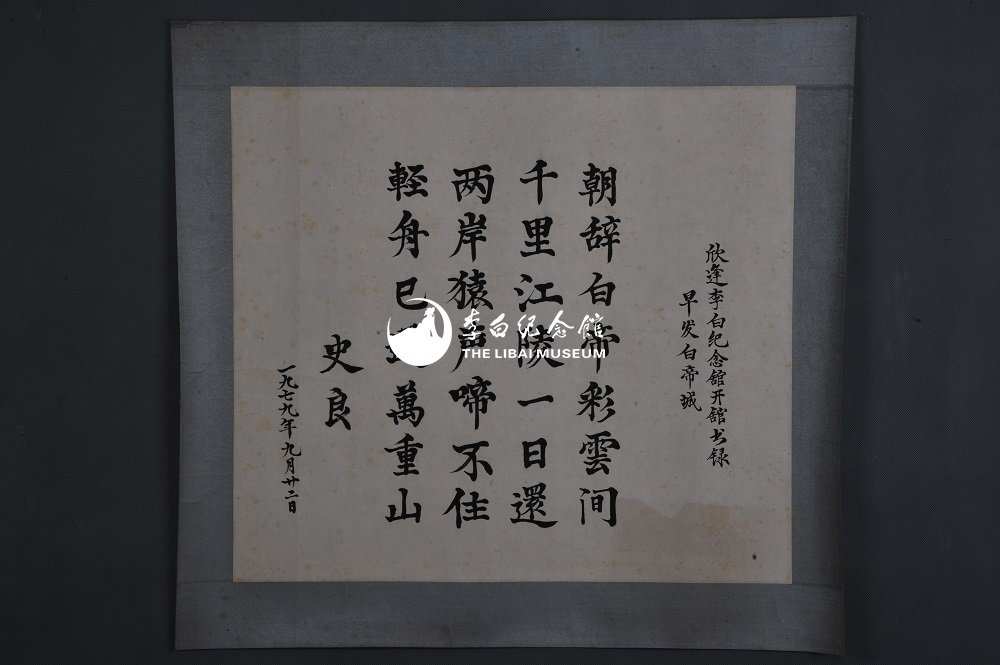 欣逢李白纪念馆开舘书录
早发白帝城
朝辞白帝彩雲间
千里江陵一日還
两岸猿声啼不住
輕舟已萬重山
史良
一九七九年九月廿二日
李白纪念馆
THE LIBAI MUSEUM